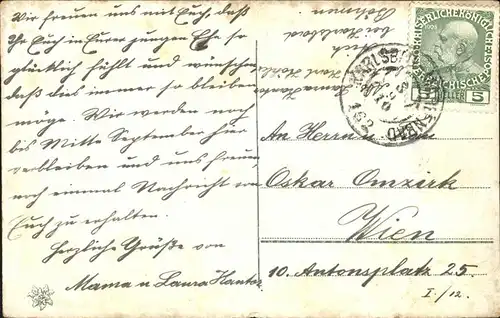 Wir freuen uns mit Euch, daß
Ihr Euch in Eurer jungen Ehe so
glücklich fühlt und wünschen
daß dies immer so bleiben
möge. Wir werden noch
bis Mitte September hier
verbleiben und uns freuen,
noch einmal Nachricht von
Euch zu erhalten.
Herzliche Grüße von
Mama u Laura Kantor
bei Karlsbad
Böhmen
KARLSBAD
5
An Herrn
Oskar Omzirk
Wien
10. Antonsplatz 25.
I./12.